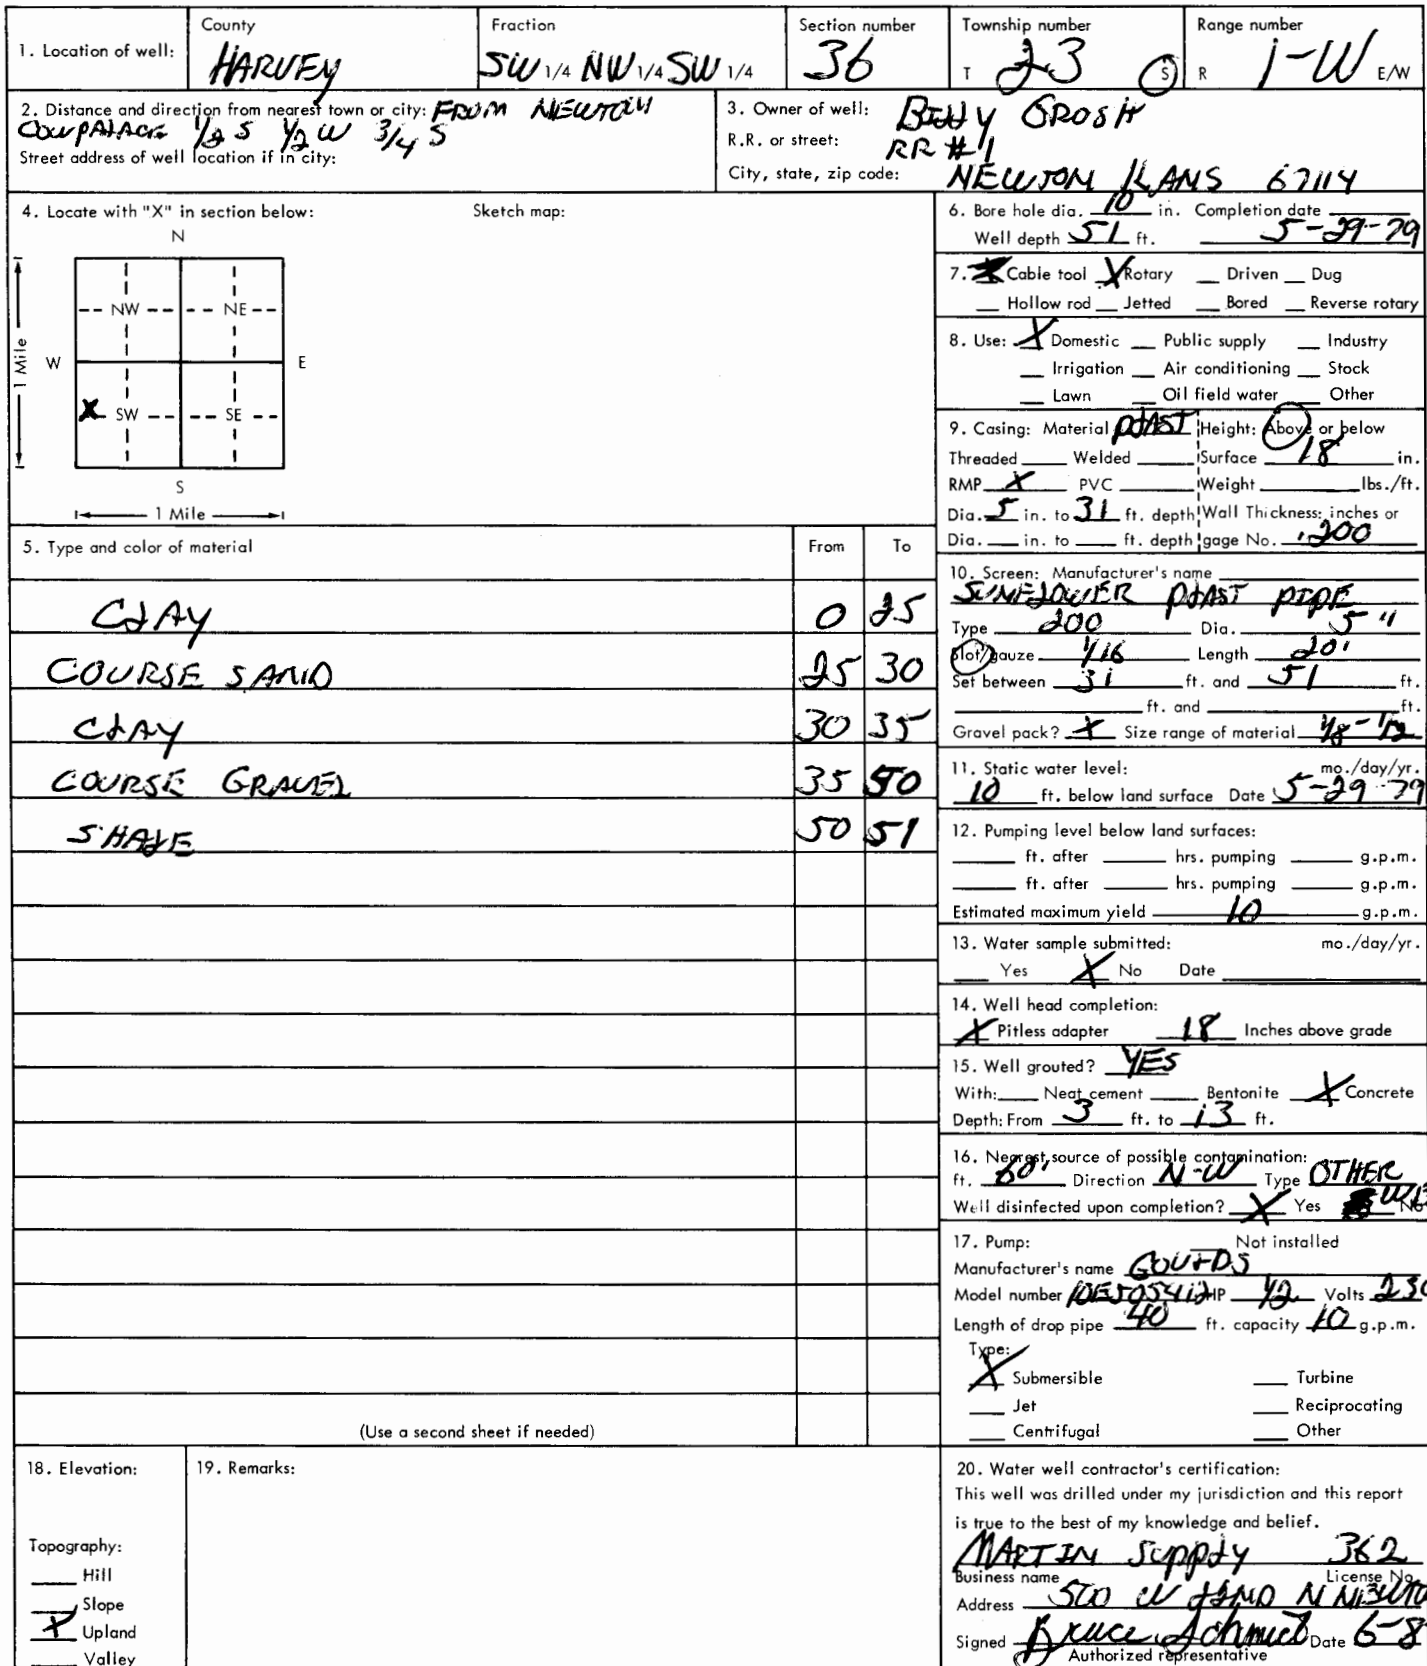 1. Location of well: County HARVEY Fraction SW 1/4 NW 1/4 SW 1/4 Section number 36 Township number T 23 S Range number R 1-W E/W
2. Distance and direction from nearest town or city: FROM NEWTON
COWPALACE 1/2 S 1/2 W 3/4 S
Street address of well location if in city:
3. Owner of well: BILLY GROSH
R.R. or street: RR #1
City, state, zip code: NEWTON KANS 67114
4. Locate with "X" in section below: Sketch map:
N
NW NE
1 Mile W E
X SW SE
S
1 Mile
5. Type and color of material From To
CLAY 0 25
COURSE SAND 25 30
CLAY 30 35
COURSE GRAVEL 35 50
SHALE 50 51
(Use a second sheet if needed)
6. Bore hole dia. 10 in. Completion date
Well depth 51 ft. 5-29-79
7. Cable tool X Rotary Driven Dug
Hollow rod Jetted Bored Reverse rotary
8. Use: X Domestic Public supply Industry
Irrigation Air conditioning Stock
Lawn Oil field water Other
9. Casing: Material PLAST Height: Above or below
Threaded Welded Surface 18 in.
RMP X PVC Weight lbs./ft.
Dia. 5 in. to 31 ft. depth Wall Thickness: inches or
Dia. in. to ft. depth gage No. .200
10. Screen: Manufacturer's name
SUNFLOWER PLAST PIPE
Type 200 Dia. 5"
Slot/gauze 1/16 Length 20'
Set between 31 ft. and 51 ft.
ft. and ft.
Gravel pack? X Size range of material 1/8 - 1/2
11. Static water level: mo./day/yr.
10 ft. below land surface Date 5-29-79
12. Pumping level below land surfaces:
ft. after hrs. pumping g.p.m.
ft. after hrs. pumping g.p.m.
Estimated maximum yield 10 g.p.m.
13. Water sample submitted: mo./day/yr.
Yes X No Date
14. Well head completion:
X Pitless adapter 18 Inches above grade
15. Well grouted? YES
With: Neat cement Bentonite X Concrete
Depth: From 3 ft. to 13 ft.
16. Nearest source of possible contamination:
ft. 60' Direction N-W Type OTHER
Well disinfected upon completion? X Yes No
17. Pump: Not installed
Manufacturer's name GOULDS
Model number 10EJ05412 HP 1/2 Volts 230
Length of drop pipe 40 ft. capacity 10 g.p.m.
Type:
X Submersible Turbine
Jet Reciprocating
Centrifugal Other
18. Elevation:
Topography:
Hill
Slope
X Upland
Valley
19. Remarks:
20. Water well contractor's certification:
This well was drilled under my jurisdiction and this report
is true to the best of my knowledge and belief.
MARTIN SUPPLY 362
Business name License No.
Address 500 W
Signed Bruce Schmidt Date 6-8
Authorized representative